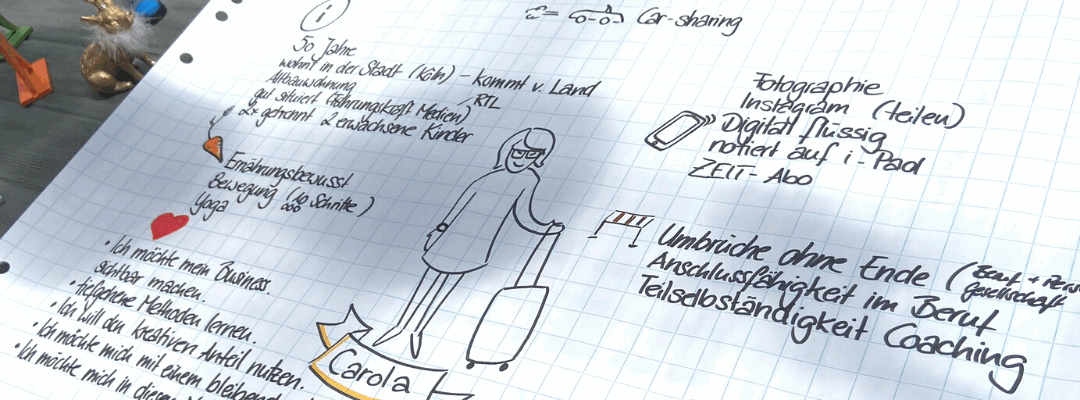 i
Car-sharing
50 Jahre
wohnt in der Stadt (Köln) - kommt v. Land
Altbauwohnung
gut situiert (Führungskraft Medien)
RTL
2x getrennt 2 erwachsene Kinder
Ernährungsbewusst
Bewegung (10 000 Schritte)
Yoga
• Ich möchte mein Business
sichtbar machen.
• tiefgehende Methoden lernen.
• Ich will den kreativen Anteil nutzen.
• Ich möchte mich mit einem
• Ich möchte mich in
Carola
Fotographie
Instagram (teilen)
Digital flüssig
notiert auf i-Pad
ZEIT-Abo
Umbrüche ohne Ende (Beruf +
Gesellschaft
Anschlussfähigkeit im Beruf
Teilselbständigkeit Coaching